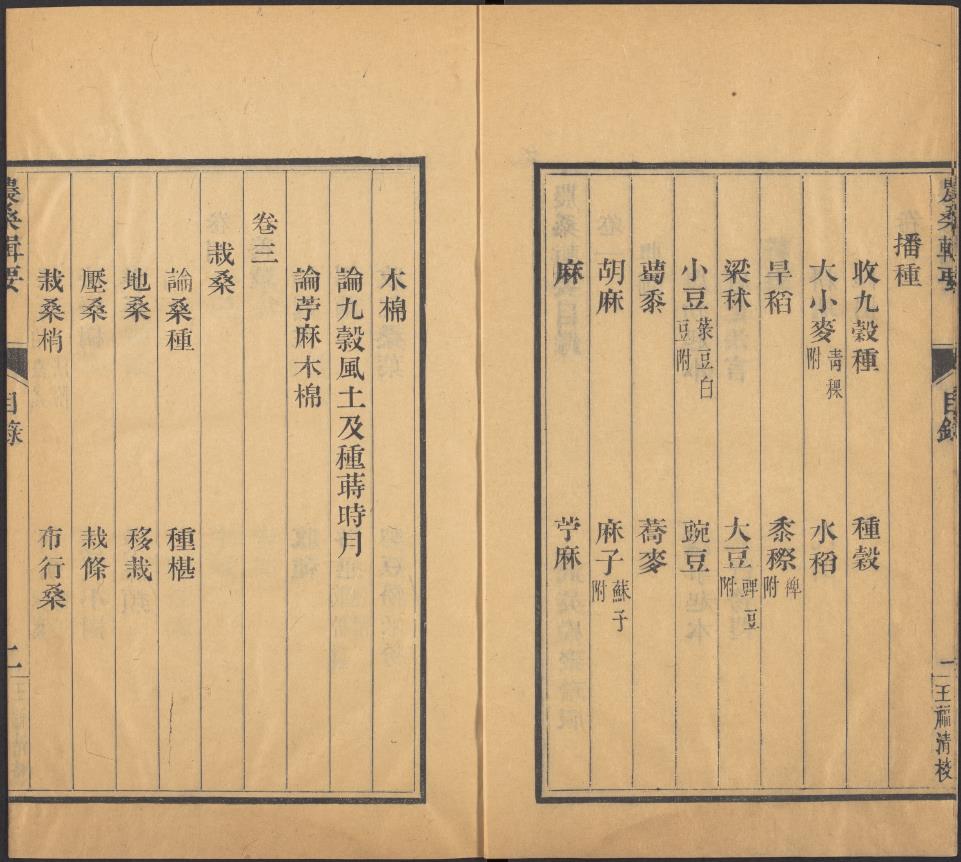 農桑輯要 目錄 二 王福清校
播種
收九穀種 種穀
大小麥 青稞附 水稻
旱稻 黍穄 稗附
粱秫 大豆 豍豆附
小豆 菉豆白豆附 豌豆
薥黍 蕎麥
胡麻 麻子 蘇子附
麻 苧麻
木棉
論九穀風土及種蒔時月
論苧麻木棉
卷三
栽桑
論桑種 種椹
地桑 移栽
壓桑 栽條
栽桑梢 布行桑
農桑輯要 目錄 二